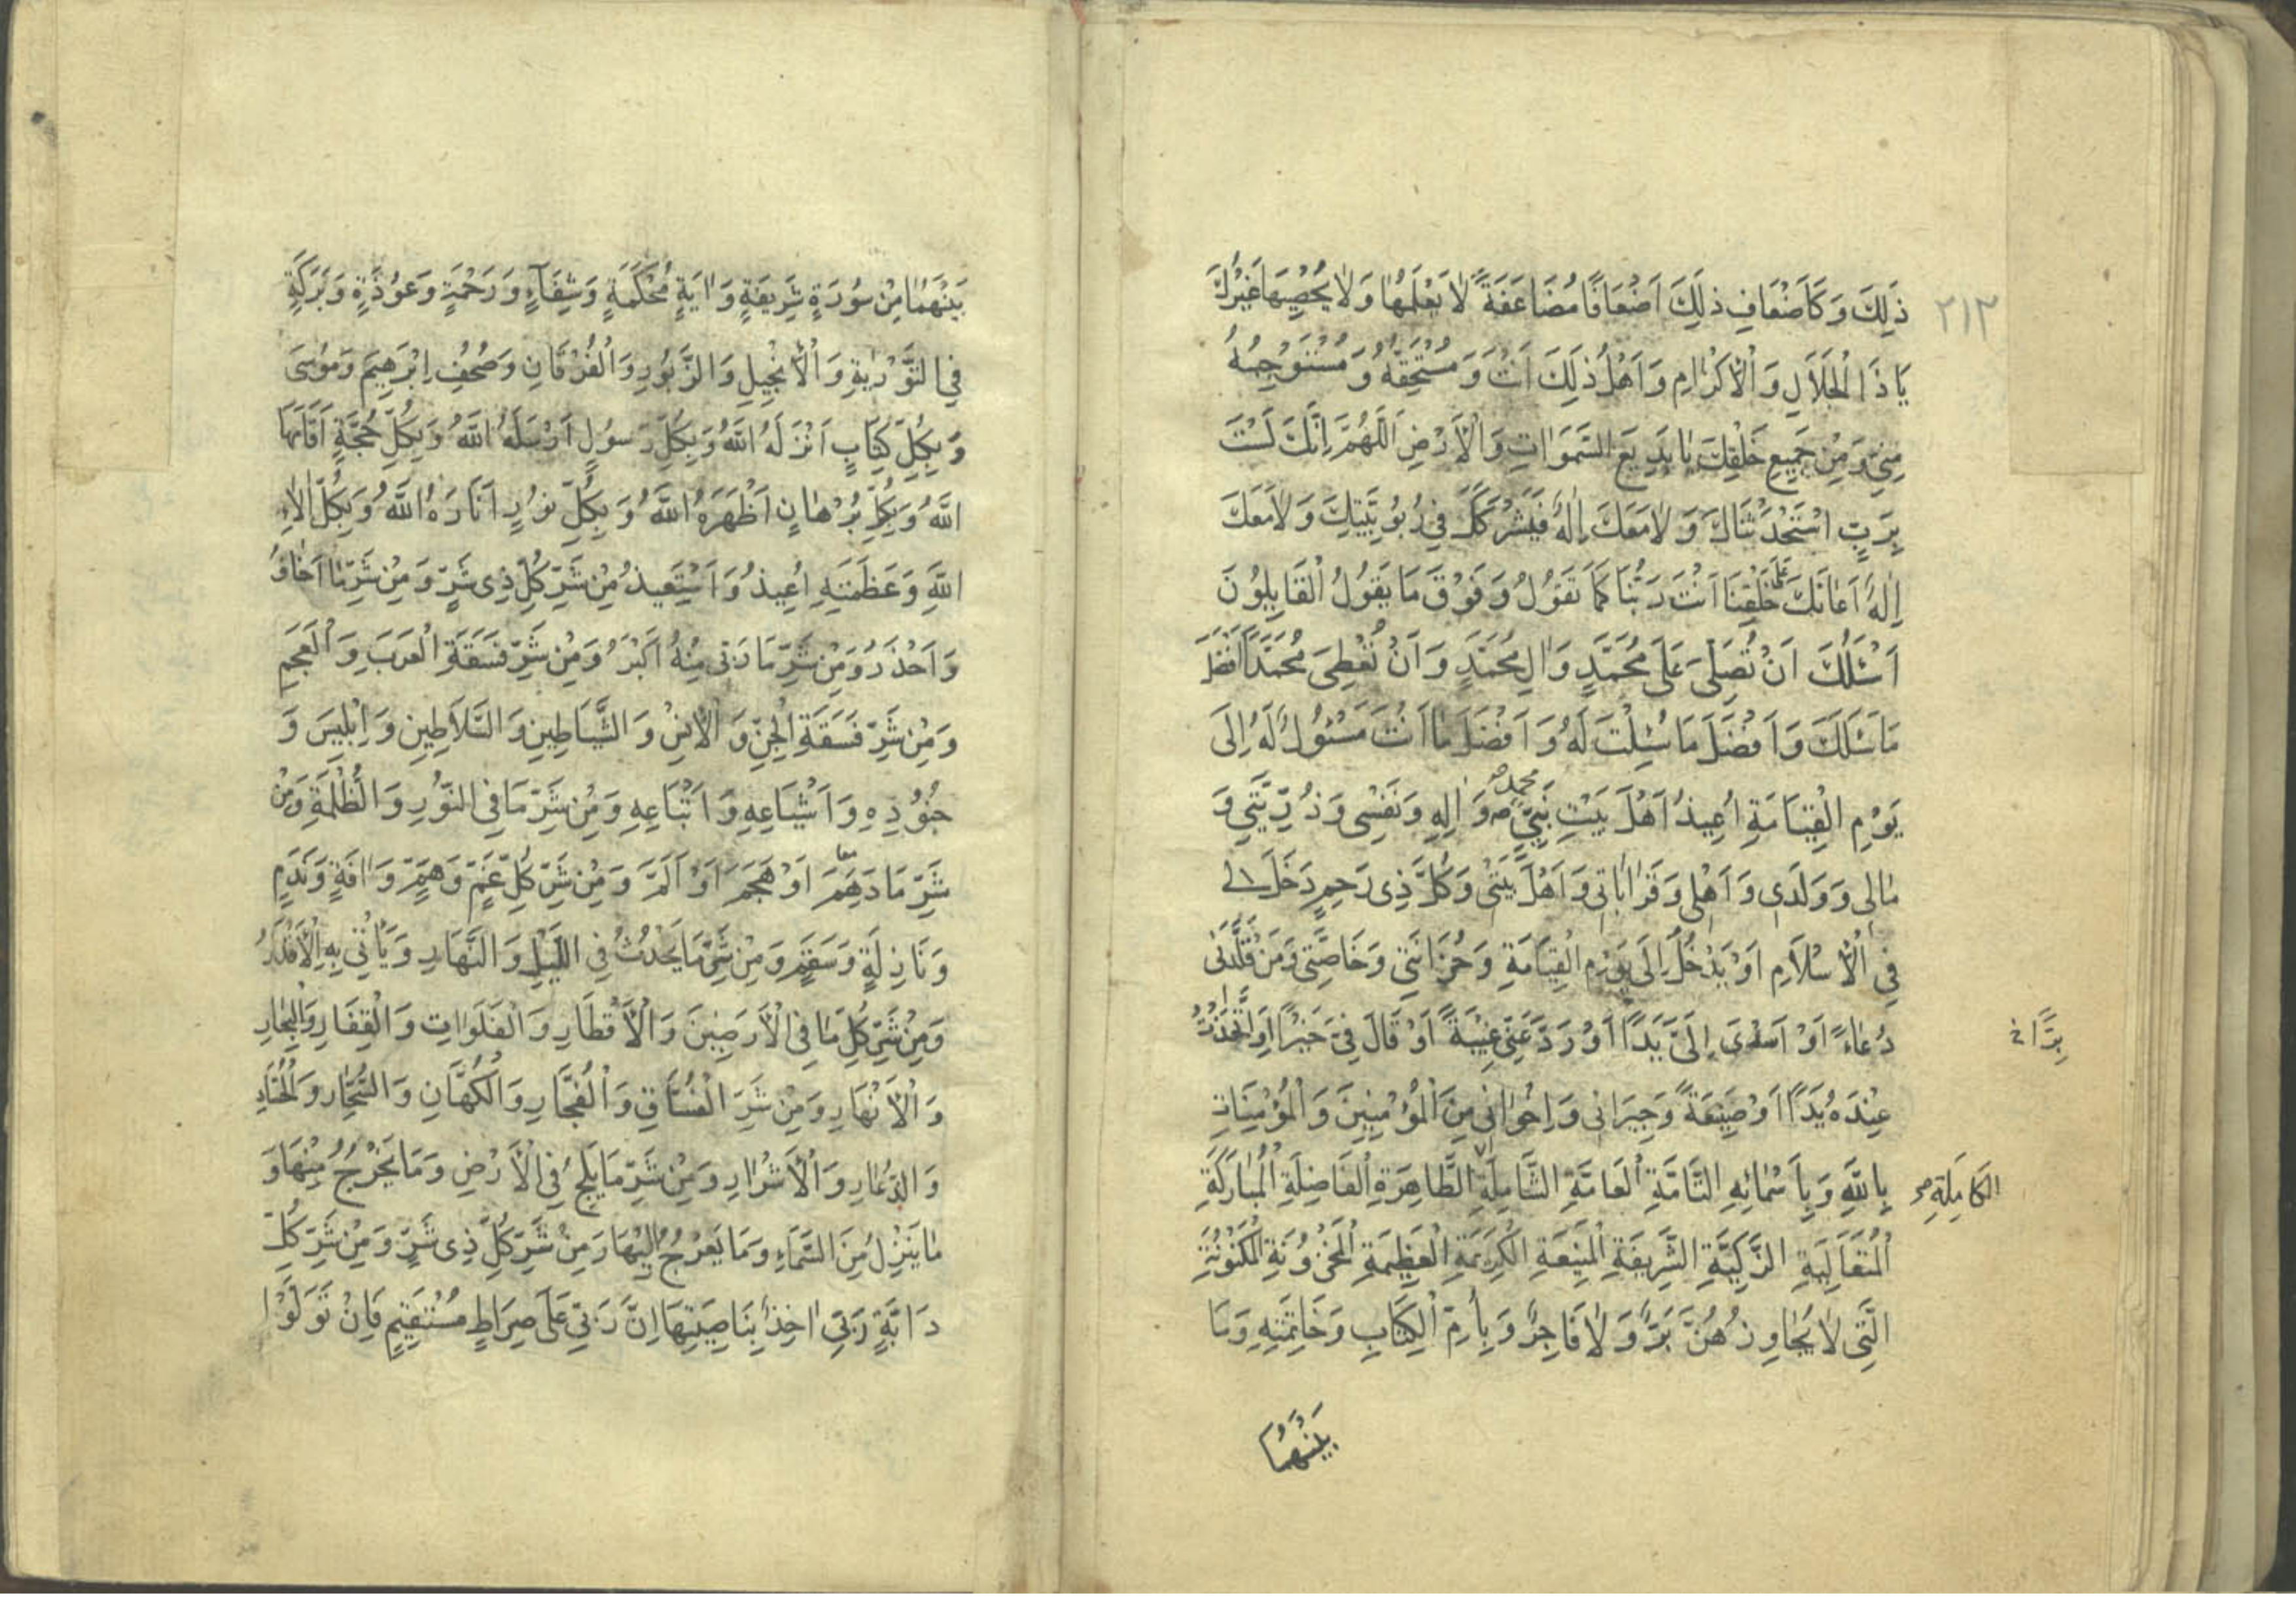 ٢١٣
ذٰلِكَ وَكَاَضْعَافِ ذٰلِكَ اَضْعَافًا مُضَاعَفَةً لَا يَعْلَمُهَا وَلَا يُحْصِيهَا غَيْرُكَ
يَا ذَا الْجَلَالِ وَالْاِكْرَامِ وَاَهْلُ ذٰلِكَ اَنْتَ وَمُسْتَحِقُّهُ وَمُسْتَوْجِبُهُ
مِنِّي وَمِنْ جَمِيعِ خَلْقِكَ يَا بَدِيعَ السَّمَوَاتِ وَالْاَرْضِ اَللّٰهُمَّ اِنَّكَ لَسْتَ
بِرَبٍّ اسْتَحْدَثْنَاكَ وَلَا مَعَكَ اِلٰهٌ فَيَشْرَكَكَ فِي رُبُوبِيَّتِكَ وَلَا مَعَكَ
اِلٰهٌ اَعَانَكَ عَلَى خَلْقِنَا اَنْتَ رَبُّنَا كَمَا تَقُولُ وَفَوْقَ مَا يَقُولُ الْقَايِلُونَ
اَسْئَلُكَ اَنْ تُصَلِّيَ عَلَى مُحَمَّدٍ وَاٰلِ مُحَمَّدٍ وَاَنْ تُعْطِيَ مُحَمَّدًا اَفْضَلَ
مَا سَئَلَكَ وَاَفْضَلَ مَا سُئِلْتَ لَهُ وَاَفْضَلَ مَا اَنْتَ مَسْئُولٌ لَهُ اِلَى
يَوْمِ الْقِيَامَةِ اُعِيذُ اَهْلَ بَيْتِ نَبِيِّي مُحَمَّدٍ ص وَاٰلِهِ وَنَفْسِي وَذُرِّيَّتِي وَ
مَالِي وَوَلَدِي وَاَهْلِي وَقَرَابَاتِي وَاَهْلَ بَيْتِي وَكُلَّ ذِي رَحِمٍ دَخَلَ لِي
فِي الْاِسْلَامِ اَوْ يَدْخُلُ اِلَى يَوْمِ الْقِيَامَةِ وَحُزَانَتِي وَخَاصَّتِي وَمَنْ قَلَّدَنِي
دُعَاءً اَوْ اَسْدَى اِلَيَّ يَدًا اَوْ رَدَّ عَنِّي غِيبَةً اَوْ قَالَ فِيَّ خَيْرًا اَوِ اتَّخَذْتُ
بِرًّا خ
عِنْدَهُ يَدًا اَوْ صَنِيعَةً وَجِيرَانِي وَاِخْوَانِي مِنَ الْمُؤْمِنِينَ وَالْمُؤْمِنَاتِ
بِاللّٰهِ وَبِاَسْمَائِهِ التَّامَّةِ الْعَامَّةِ الشَّامِلَةِ الطَّاهِرَةِ الْفَاضِلَةِ الْمُبَارَكَةِ
الكَامِلَةِ صح
الْمُتَعَالِيَةِ الزَّكِيَّةِ الشَّرِيفَةِ الْمَنِيعَةِ الْكَرِيمَةِ الْعَظِيمَةِ الْمَخْزُونَةِ الْمَكْنُونَةِ
الَّتِي لَا يُجَاوِزُهُنَّ بَرٌّ وَلَا فَاجِرٌ وَبِاُمِّ الْكِتَابِ وَخَاتِمَتِهِ وَمَا
بَيْنَهُمَا
بَيْنَهُمَا مِنْ سُورَةٍ شَرِيفَةٍ وَاٰيَةٍ مُحْكَمَةٍ وَشِفَاءٍ وَرَحْمَةٍ وَعَوْذَةٍ وَبَرَكَةٍ
فِي التَّوْرٰيةِ وَالْاِنْجِيلِ وَالزَّبُورِ وَالْفُرْقَانِ وَصُحُفِ اِبْرَهِيمَ وَمُوسَى
وَبِكُلِّ كِتَابٍ اَنْزَلَهُ اللّٰهُ وَبِكُلِّ رَسُولٍ اَرْسَلَهُ اللّٰهُ وَبِكُلِّ حُجَّةٍ اَقَامَهَا
اللّٰهُ وَبِكُلِّ بُرْهَانٍ اَظْهَرَهُ اللّٰهُ وَبِكُلِّ نُورٍ اَنَارَهُ اللّٰهُ وَبِكُلِّ اٰلَاءِ
اللّٰهِ وَعَظَمَتِهِ اُعِيذُ وَاَسْتَعِيذُ مِنْ شَرِّ كُلِّ ذِي شَرٍّ وَمِنْ شَرِّ مَا اَخَافُ
وَاَحْذَرُ وَمِنْ شَرِّ مَا رَبِّي مِنْهُ اَكْبَرُ وَمِنْ شَرِّ فَسَقَةِ الْعَرَبِ وَالْعَجَمِ
وَمِنْ شَرِّ فَسَقَةِ الْجِنِّ وَالْاِنْسِ وَالشَّيَاطِينِ وَالسَّلَاطِينِ وَاِبْلِيسَ وَ
جُنُودِهِ وَاَشْيَاعِهِ وَاَتْبَاعِهِ وَمِنْ شَرِّ مَا فِي النُّورِ وَالظُّلْمَةِ وَمِنْ
شَرِّ مَا دَهِمَ اَوْ هَجَمَ اَوْ اَلَمَّ وَمِنْ شَرِّ كُلِّ غَمٍّ وَهَمٍّ وَاٰفَةٍ وَنَدَمٍ
وَنَازِلَةٍ وَسَقَمٍ وَمِنْ شَرِّ مَا يَحْدُثُ فِي اللَّيْلِ وَالنَّهَارِ وَيَاْتِي بِهِ الْاَقْدَارُ
وَمِنْ شَرِّ كُلِّ مَا فِي الْاَرَضِينَ وَالْاَقْطَارِ وَالْفَلَوَاتِ وَالْقِفَارِ وَالْبِحَارِ
وَالْاَنْهَارِ وَمِنْ شَرِّ الْفُسَّاقِ وَالْفُجَّارِ وَالْكُهَّانِ وَالسُّحَّارِ وَالْحُسَّادِ
وَالذُّعَّارِ وَالْاَشْرَارِ وَمِنْ شَرِّ مَا يَلِجُ فِي الْاَرْضِ وَمَا يَخْرُجُ مِنْهَا وَ
مَا يَنْزِلُ مِنَ السَّمَاءِ وَمَا يَعْرُجُ اِلَيْهَا وَمِنْ شَرِّ كُلِّ ذِي شَرٍّ وَمِنْ شَرِّ كُلِّ
دَابَّةٍ رَبِّي اٰخِذٌ بِنَاصِيَتِهَا اِنَّ رَبِّي عَلَى صِرَاطٍ مُسْتَقِيمٍ فَاِنْ تَوَلَّوْا